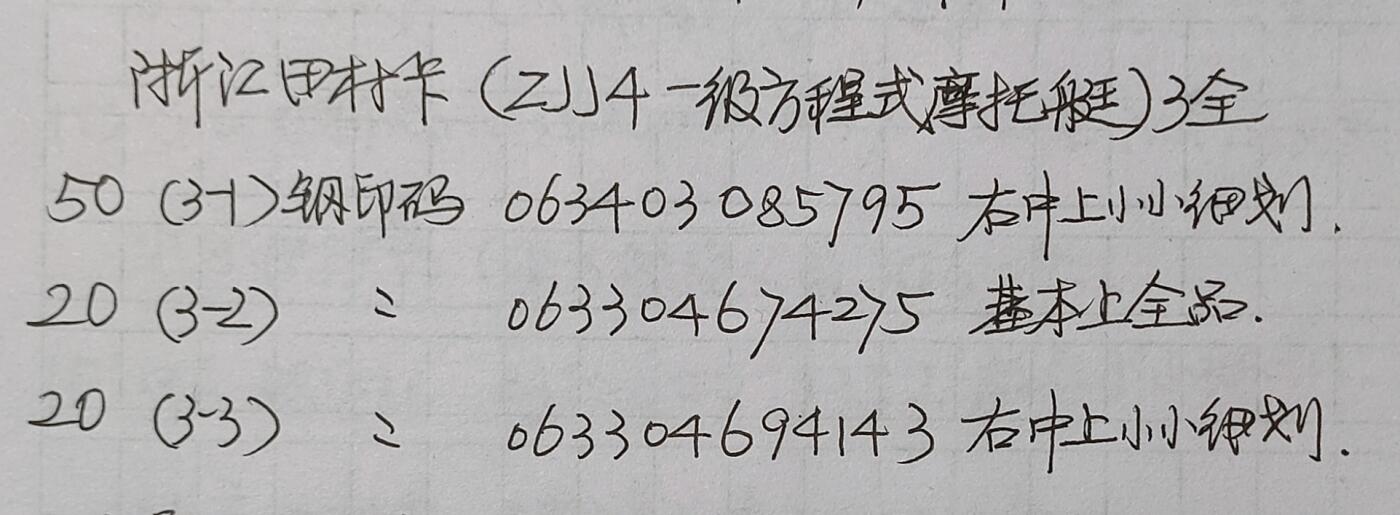 浙江田村卡(ZJJ4一级方程式摩托艇)3全
50 (3-1)钢印码 063403085795 右中上小小细划.
20 (3-2) 〃 063304674275 基本上全品.
20 (3-3) 〃 063304694143 右中上小小细划.